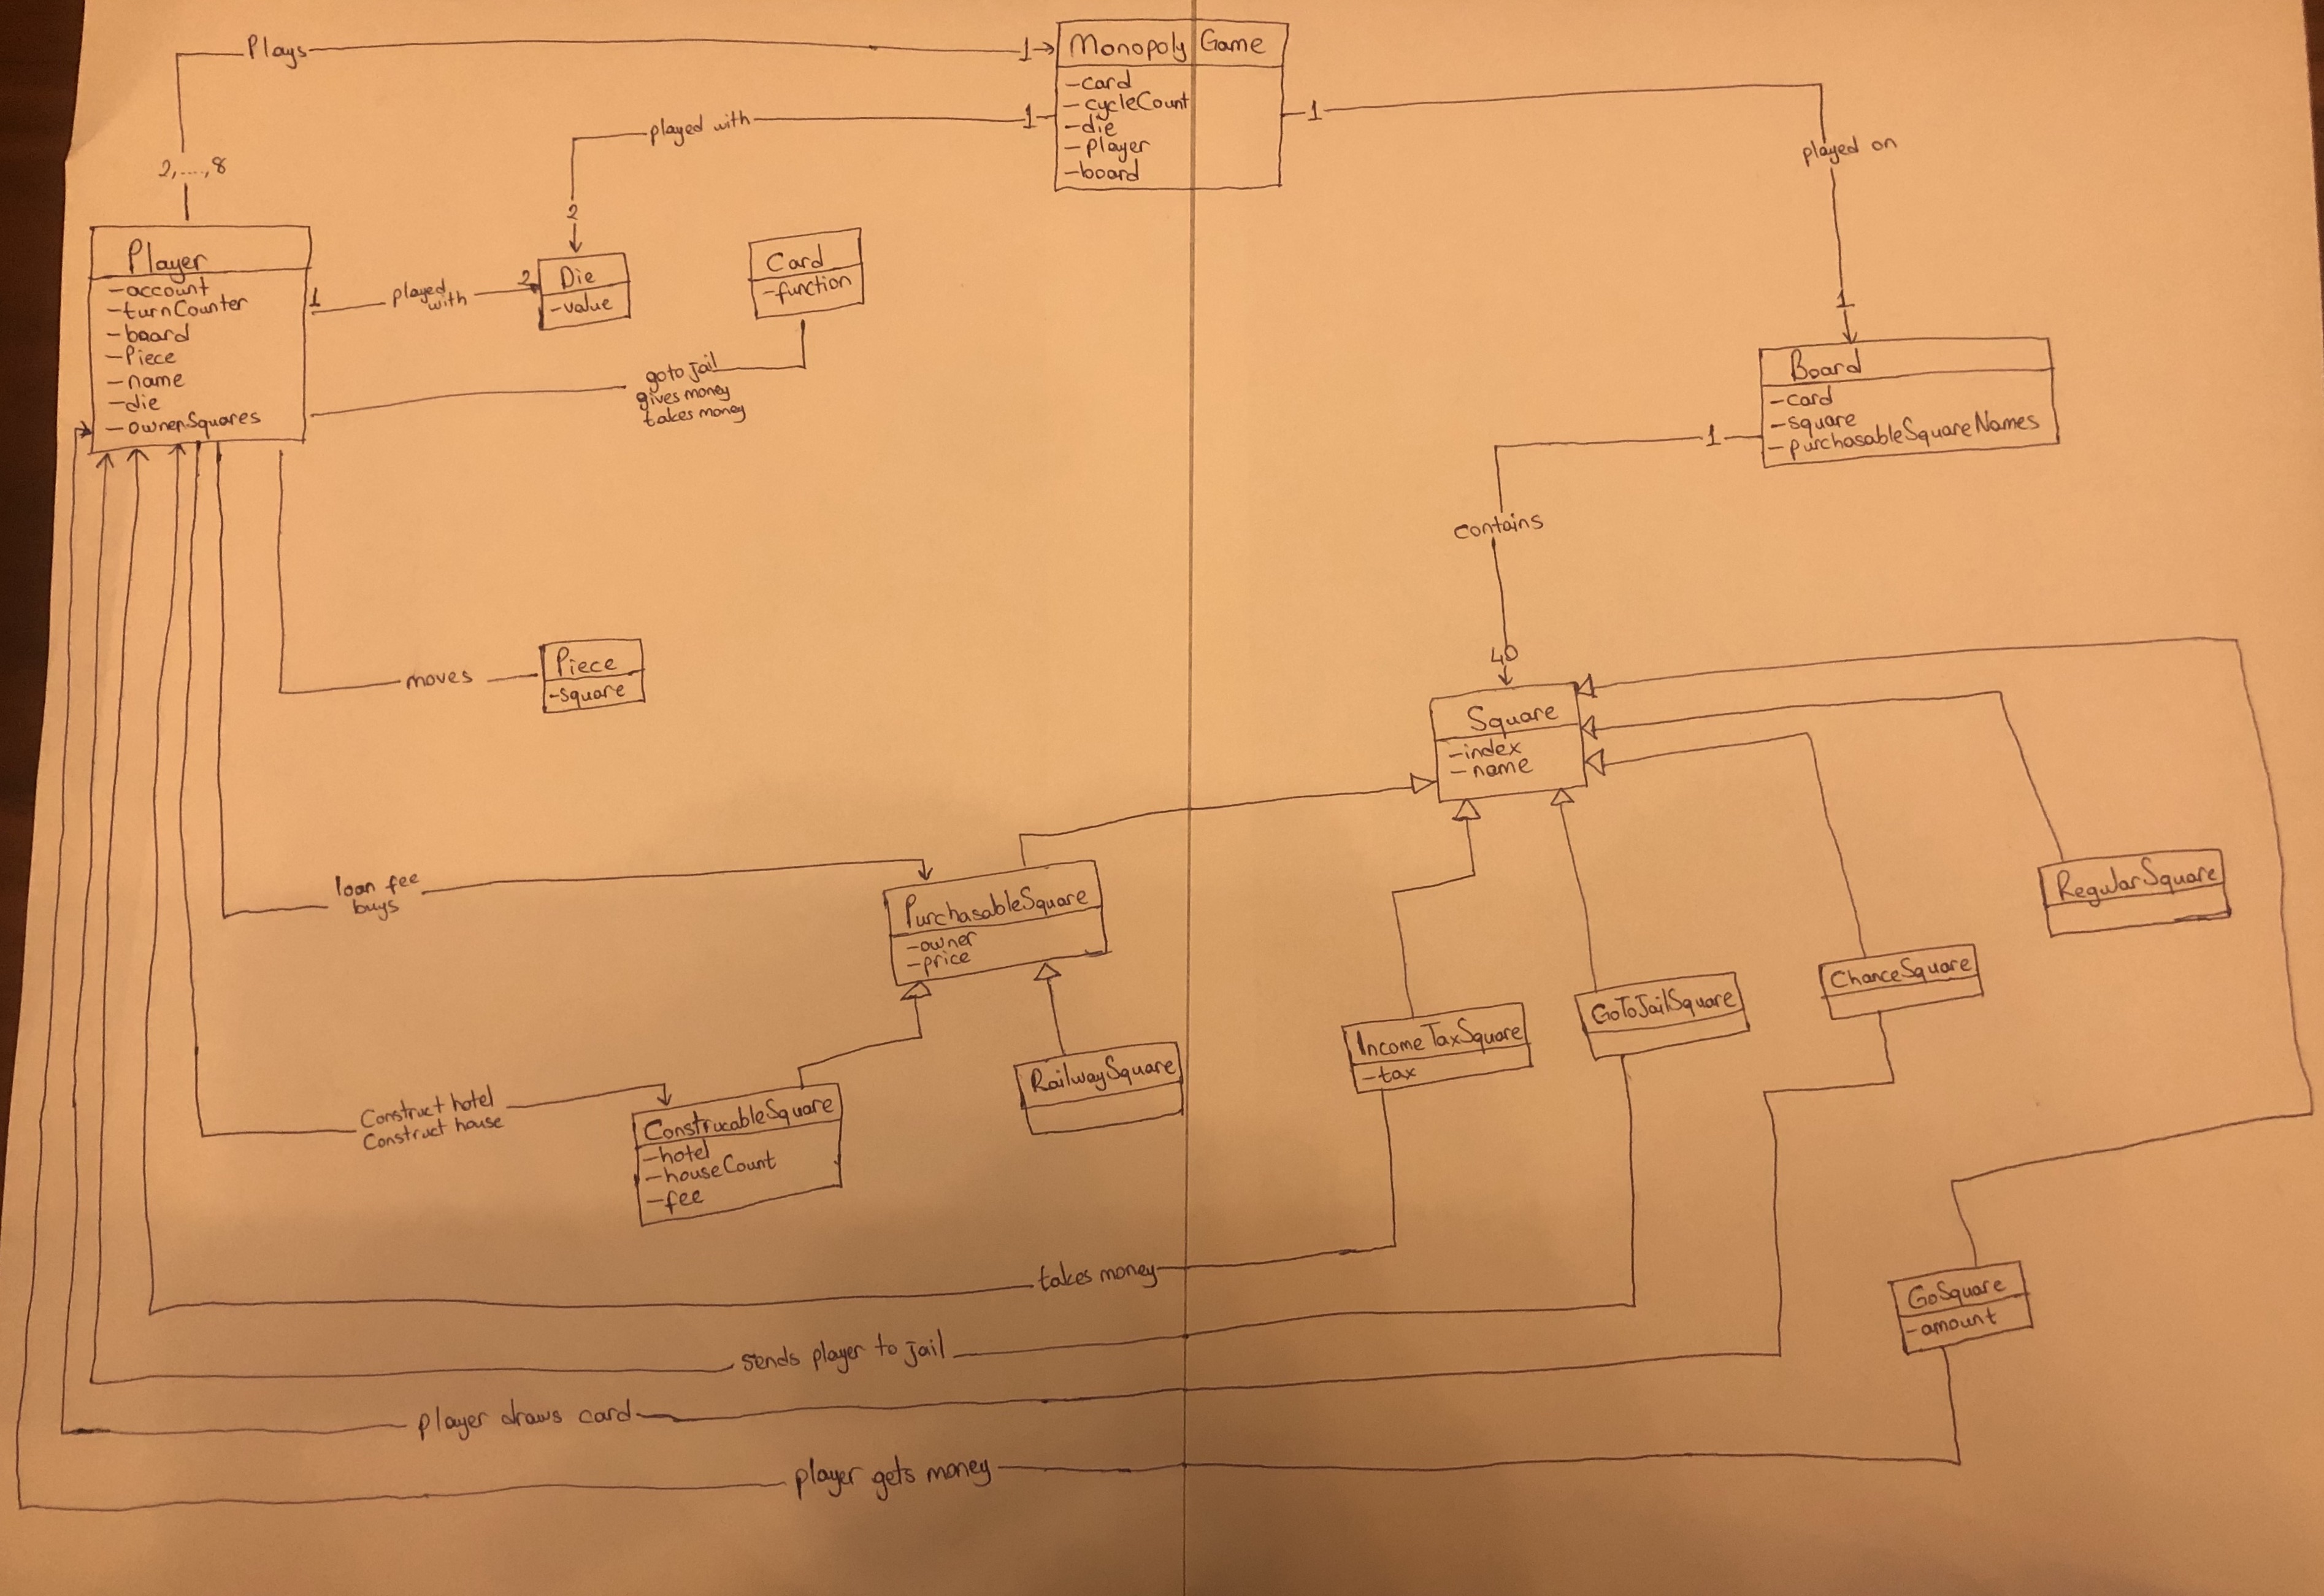 Plays
1
Monopoly Game
-card
-cycleCount
-die
-player
-board
1
played with
2
1
played on
1
2,....,8
Player
-account
-turnCounter
-board
-Piece
-name
-die
-ownerSquares
1
played
with
2
Die
-value
Card
-function
goto jail
gives money
takes money
Board
-card
-square
-purchasableSquareNames
1
contains
40
moves
Piece
-square
Square
-index
-name
loan fee
buys
PurchasableSquare
-owner
-price
RegularSquare
ChanceSquare
GoToJailSquare
IncomeTaxSquare
-tax
RailwaySquare
Construct hotel
Construct house
ConstrucableSquare
-hotel
-houseCount
-fee
takes money
GoSquare
-amount
sends player to jail
player draws card
player gets money